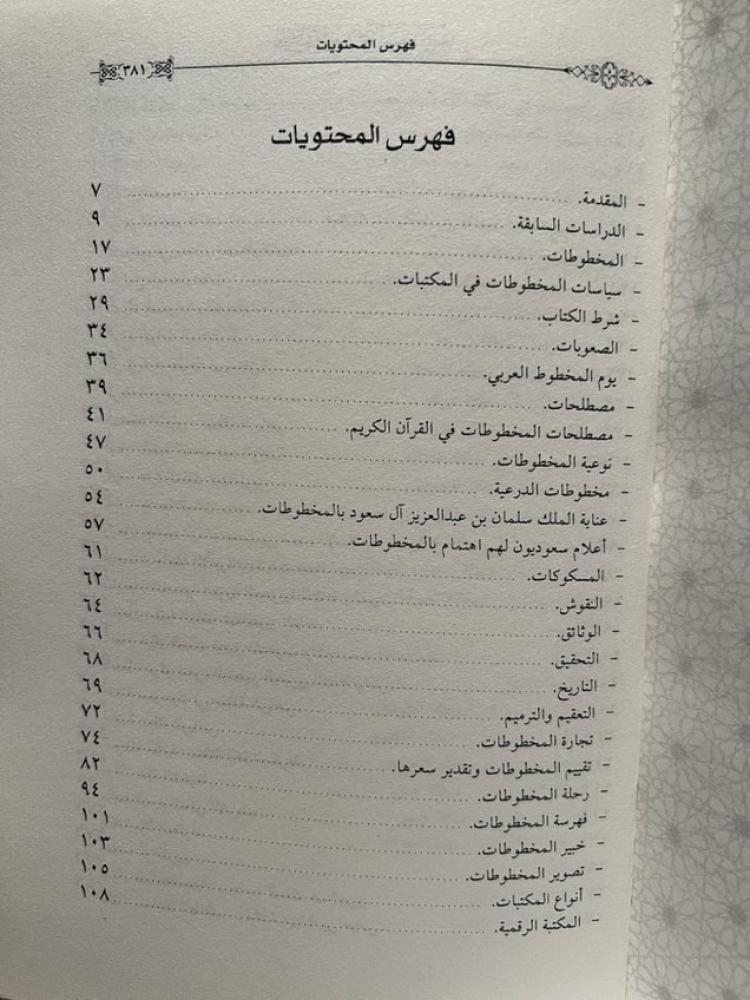 فهرس المحتويات
٣٨١
فهرس المحتويات
- المقدمة. ٧
- الدراسات السابقة. ٩
- المخطوطات. ١٧
- سياسات المخطوطات في المكتبات. ٢٣
- شرط الكتاب. ٢٩
- الصعوبات. ٣٤
- يوم المخطوط العربي. ٣٦
- مصطلحات. ٣٩
- مصطلحات المخطوطات في القرآن الكريم. ٤١
- نوعية المخطوطات. ٤٧
- مخطوطات الدرعية. ٥٠
- عناية الملك سلمان بن عبدالعزيز آل سعود بالمخطوطات. ٥٤
- أعلام سعوديون لهم اهتمام بالمخطوطات. ٥٧
- المسكوكات. ٦١
- النقوش. ٦٢
- الوثائق. ٦٤
- التحقيق. ٦٦
- التاريخ. ٦٨
- التعقيم والترميم. ٦٩
- تجارة المخطوطات. ٧٢
- تقييم المخطوطات وتقدير سعرها. ٧٤
- رحلة المخطوطات. ٨٢
- فهرسة المخطوطات. ٩٤
- خبير المخطوطات. ١٠١
- تصوير المخطوطات. ١٠٣
- أنواع المكتبات. ١٠٥
- المكتبة الرقمية. ١٠٨